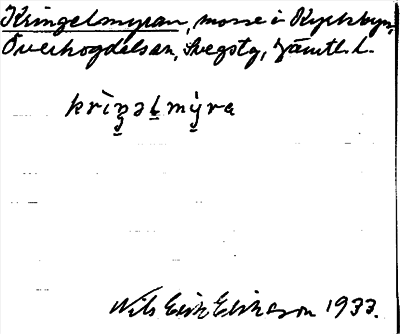 Kringelmyran, mosse i Kyrkbyn,
Överhogdalssn, Svegstg, Jämtl. l.
krìŋəḷmýra
Nils Erik Eriksson 1933.